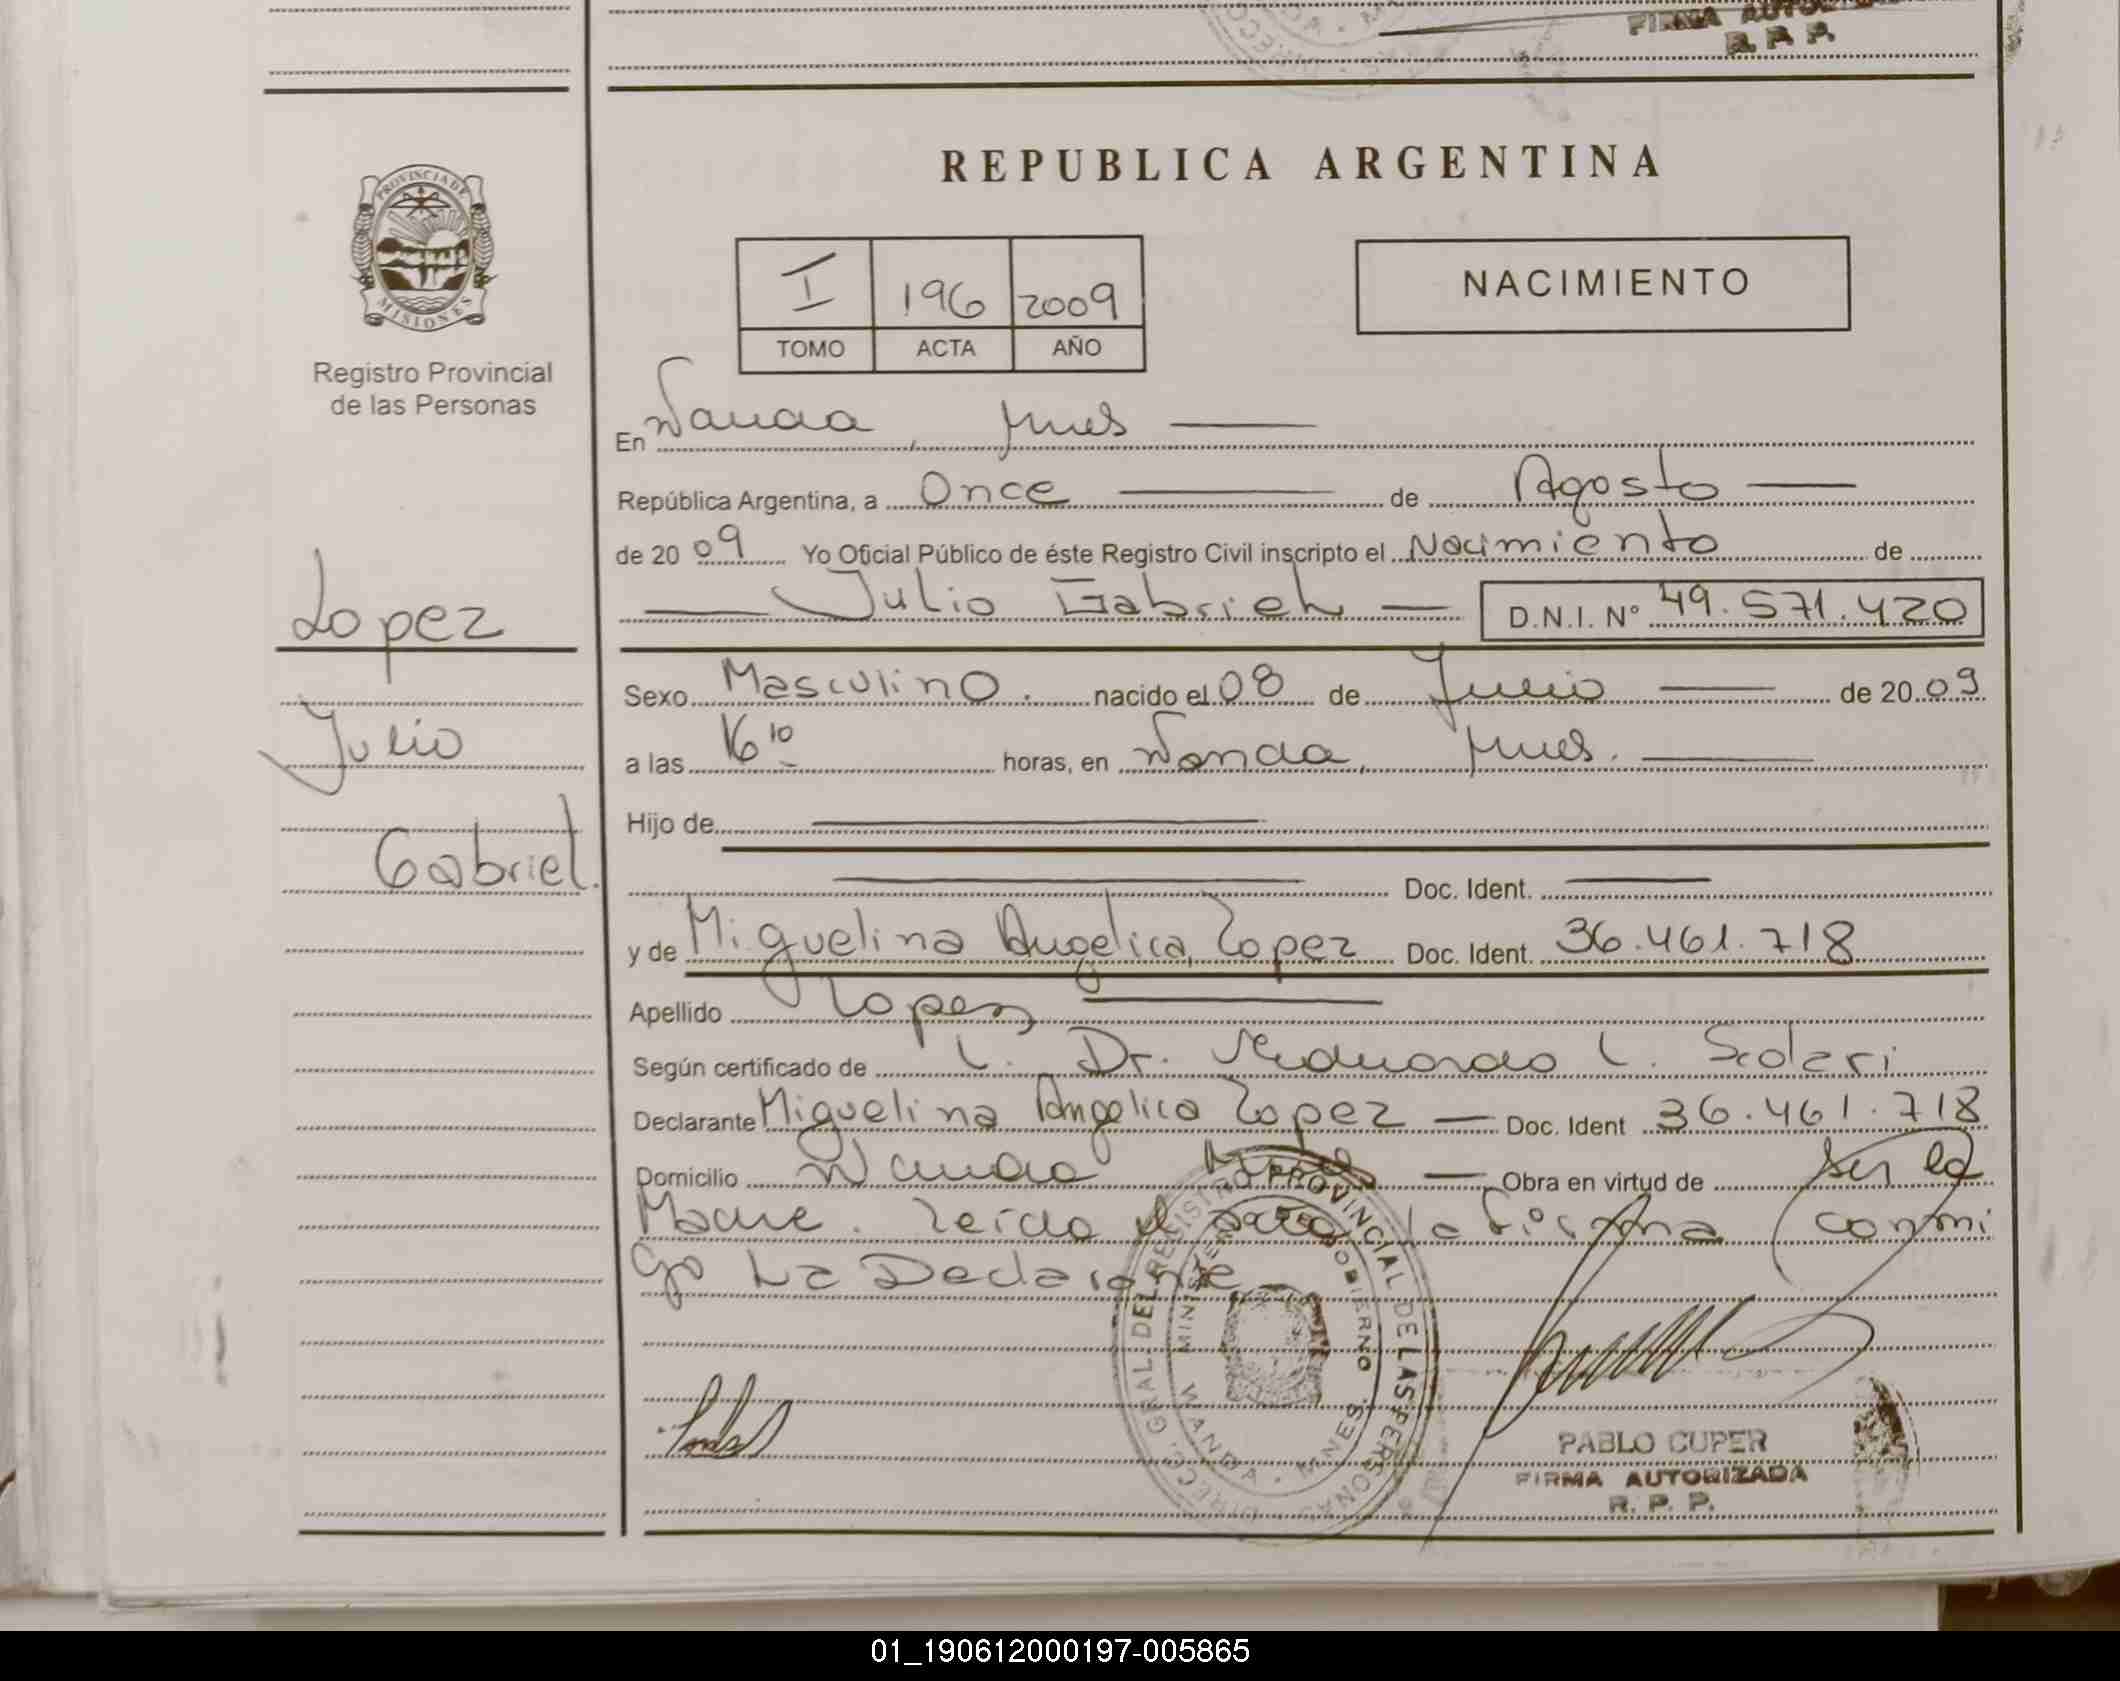 FIRMA AUTORIZADA
R. P. P.
REPUBLICA ARGENTINA
PROVINCIA DE
MISIONES
Registro Provincial
de las Personas
I 196 2009
TOMO ACTA AÑO
NACIMIENTO
En Wanda, Mnes
República Argentina, a Once de Agosto
de 20 09 Yo Oficial Público de éste Registro Civil inscripto el Nacimiento de
Julio Gabriel D.N.I. Nº 49.571.420
Lopez
Julio
Gabriel.
Sexo Masculino. nacido el 08 de Junio de 20 09
a las 16 10 horas, en Wanda, Mnes.
Hijo de
Doc. Ident.
y de Miguelina Angelica Lopez Doc. Ident. 36.461.718
Apellido Lopez
Según certificado de Dr. Eduardo L. Scolari
Declarante Miguelina Angelica Lopez Doc. Ident 36.461.718
Domicilio Wanda Mnes Obra en virtud de Ser la
Madre. Leida el acta la firma conmi
go La Declarante
DIRECC. GRAL. DEL REGISTRO PROVINCIAL DE LAS PERSONAS
GOBIERNO
WANDA - MNES.
PABLO CUPER
FIRMA AUTORIZADA
R. P. P.
01_190612000197-005865